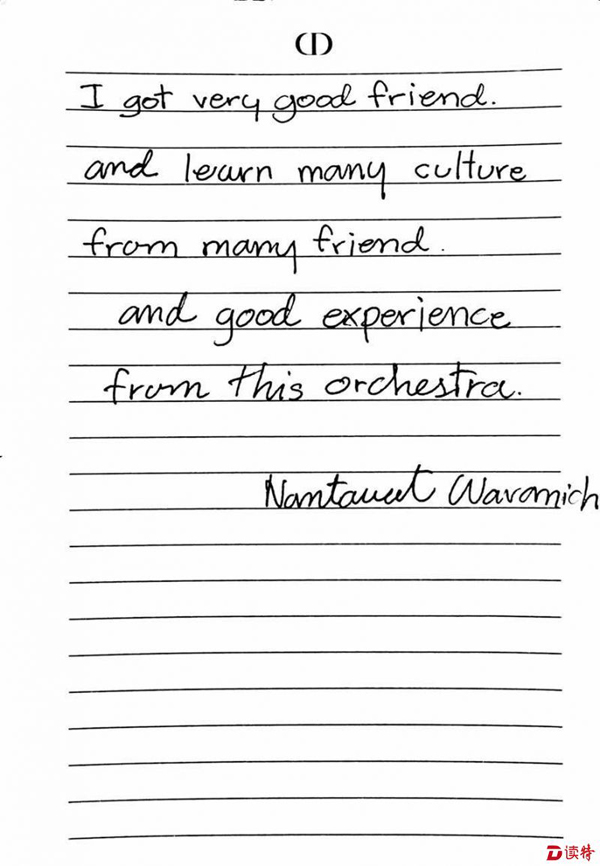 I got very good friend.
and learn many culture
from many friend.
and good experience
from this orchestra.
Waromich
读特